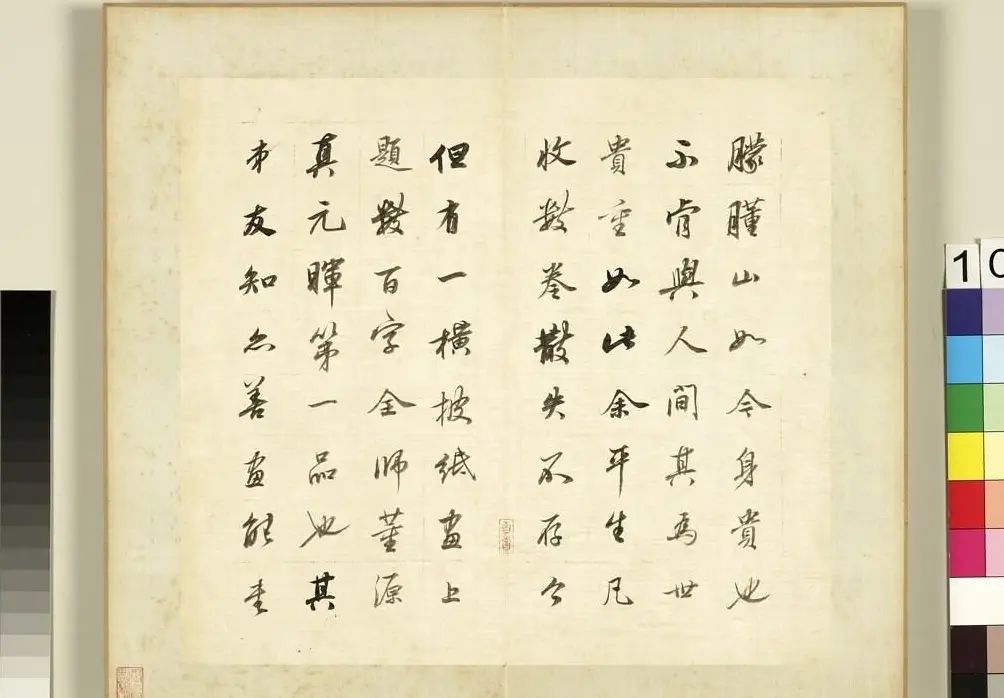 朦朣山如今身貴也
不肯與人間其為世
貴重如此余平生凡
收數卷散失不存今
但有一橫披紙畫上
題數百字全師董源
真元暉第一品也其
弟友知亦善畫能書
10